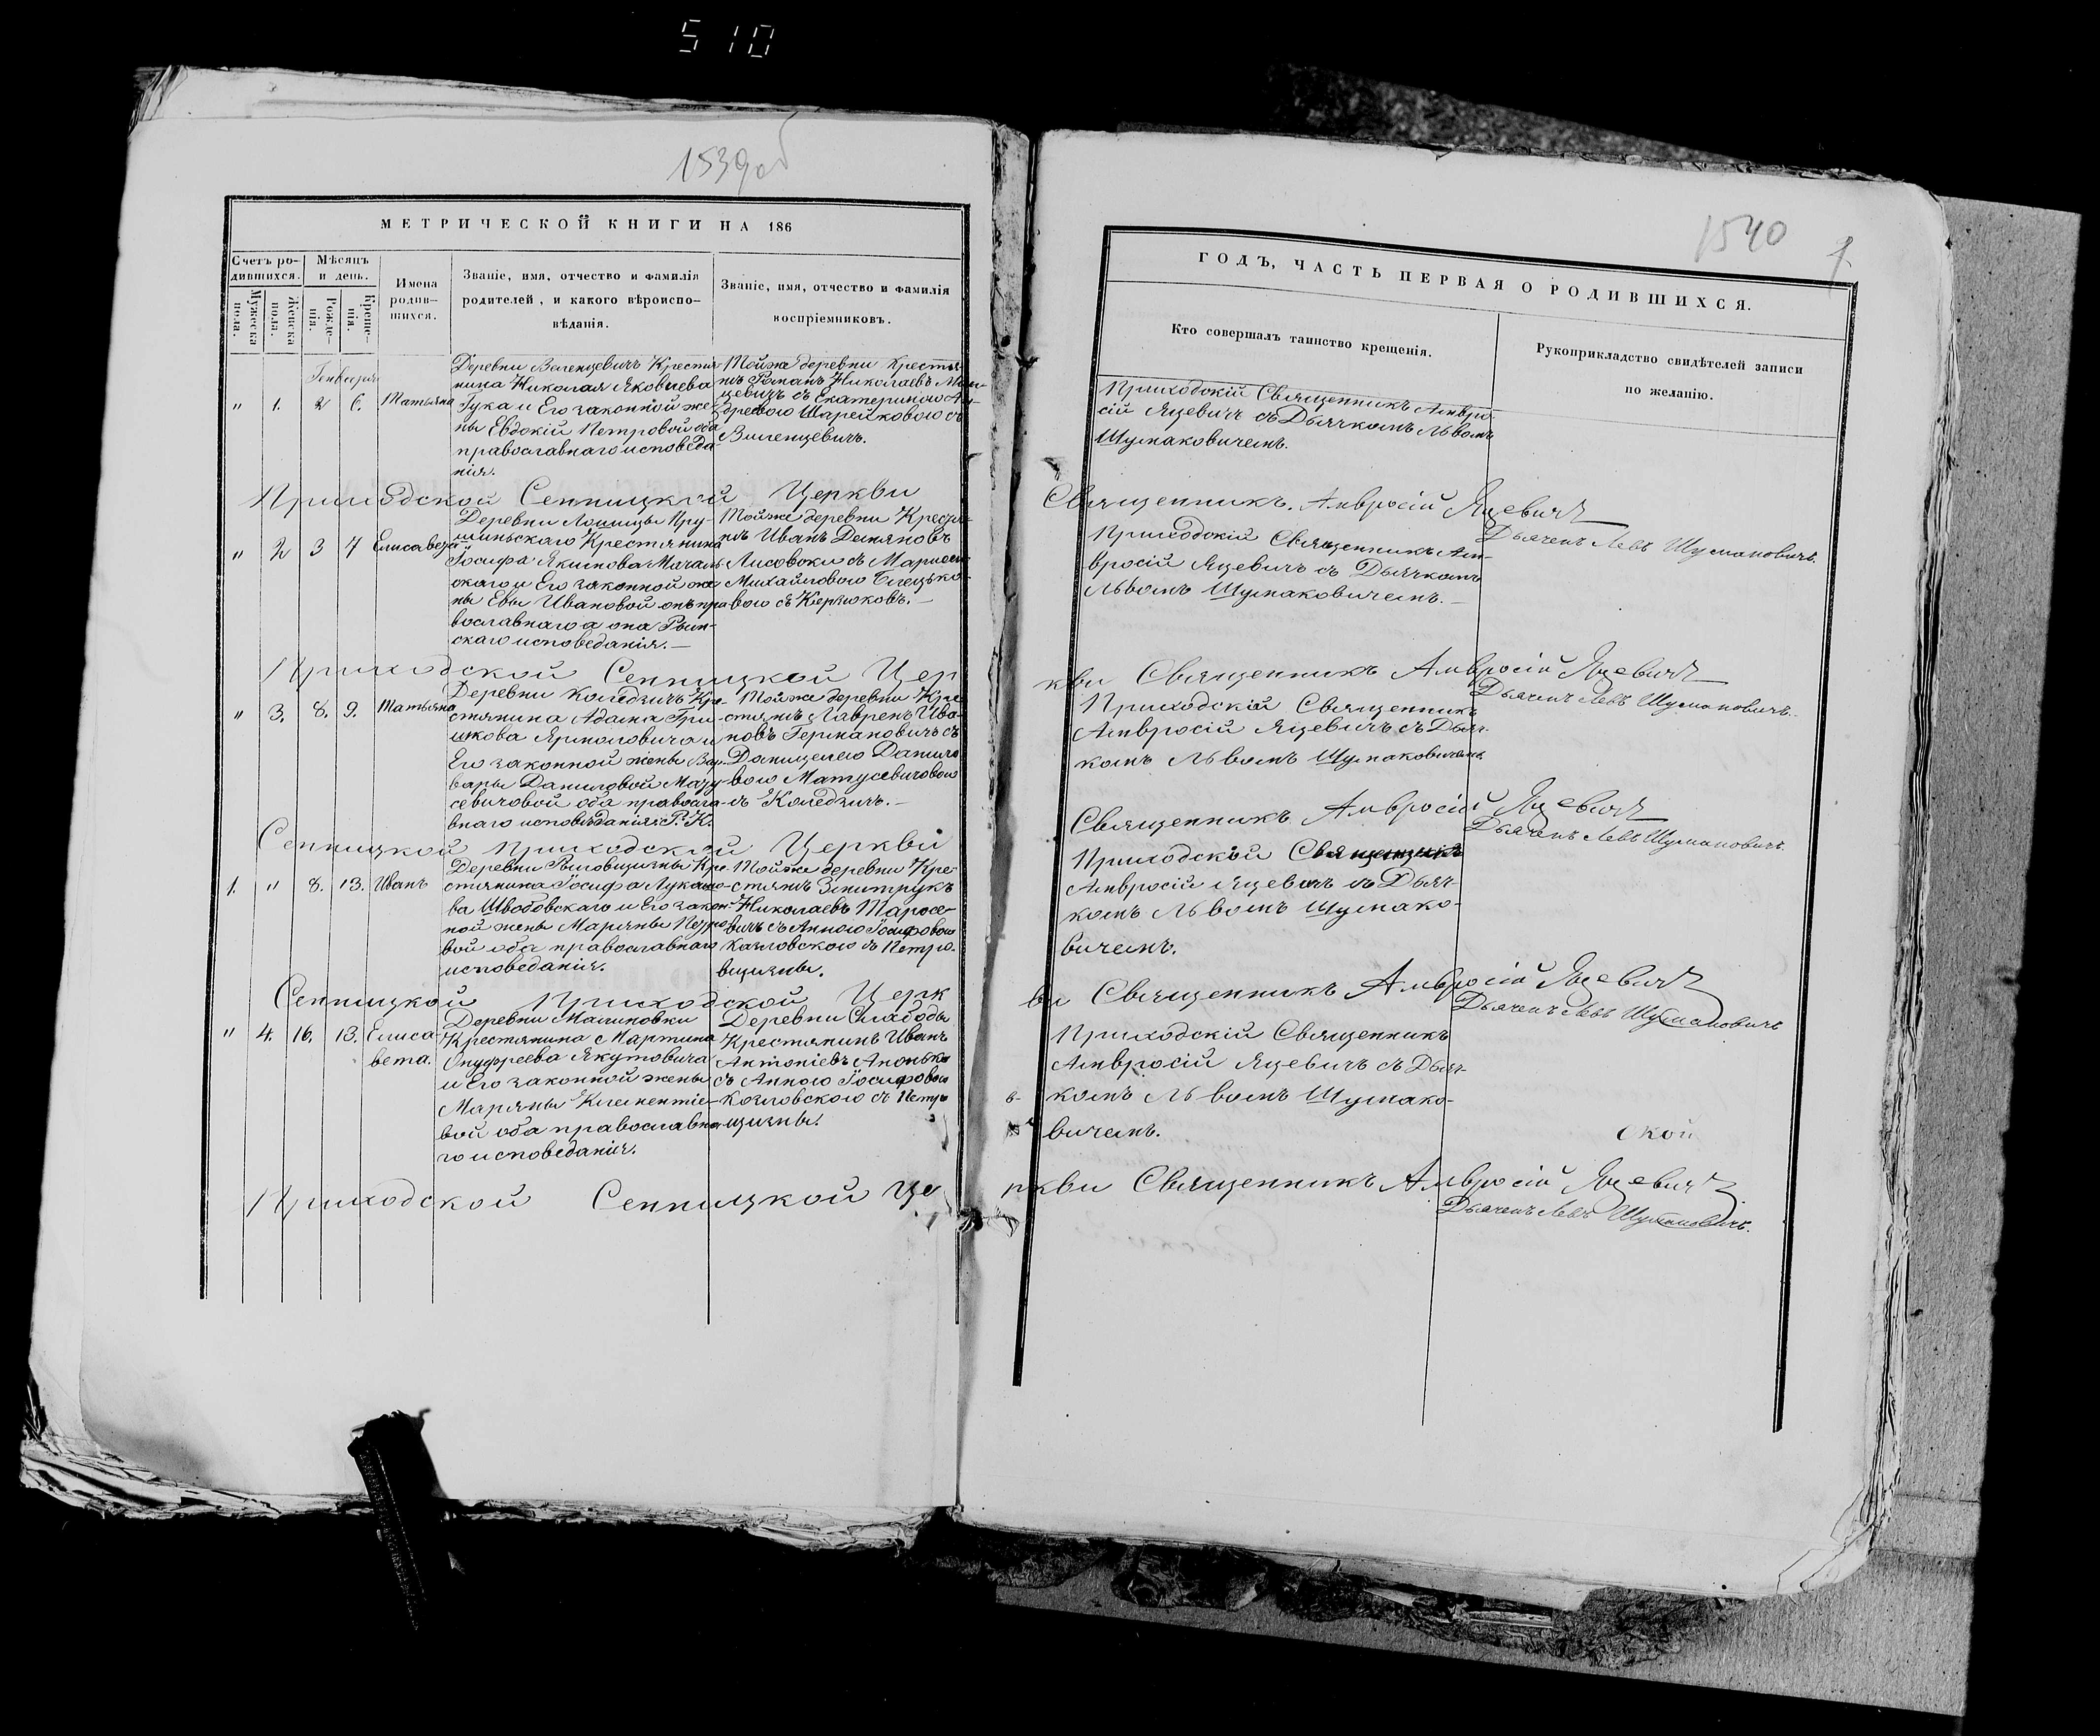 510
1539об
МЕТРИЧЕСКОЙ КНИГИ НА 186
Счетъ ро-
дившихся.
Мѣсяцъ
и день.
Мужеска
пола.
Женска
пола.
Рожде-
нія.
Креще-
нія.
Имена
родив-
шихся.
Званіе, имя, отчество и фамилія
родителей, и какого вѣроиспо-
вѣданія.
Званіе, имя, отчество и фамилія
воспріемниковъ.
Генваря
" 1. 2 6. Татьяна
Деревни Крестья-
нина Николая Яковлева
Гука и Его законной же-
ны Евдокій Петровой оба
православнаго исповеда
нія.
Тойже деревни Крестья-
нъ Романъ Николаевъ
цевичъ съ Екатериною Ан-
дреевою Шарейковою съ
Приходской Сенницкой Церкви
" 2 3 7 Елисавета
Деревни Лошицы Пру-
шиньскаго Крестянина
Іосифа Якимова
скаго и Его законной же
ны Евы Ивановой онъ пра
вославнаго а она Рим-
скаго исповеданія.—
Тойже деревни Крестя-
нъ Иванъ Демяновъ
Лисовски съ
Михайловою
вою съ
Приходской Сенницкой Цер
" 3. 8. 9. Татьяна
Деревни Коледичъ Кре-
стянина Адама Гри-
шкова Ярмоловича и
Его законной жены Вар-
вары Даниловой Мату
севичовой оба правосла-
внаго исповѣданія Р. К.
Тойже деревни Кре
стянъ Лавренъ Ива-
новъ Германовичъ съ
Домицелею Данило
вою Матусевичовою
съ Коледичъ.—
Сенницкой приходской Церкви
1. " 8. 13. Иванъ
Деревни Кре-
стянина Іосифа Лукашо-
ва Шводовскаго и Его закон-
ной жены Марьяны Петро
вой оба православнаго
исповеданія.
Тойже деревни Кре
стянъ Змитрукъ
Николаевъ Тарасе-
вичъ съ Анною Іосифовою
Козловскою съ Петро-
вщизны.
Сенницкой Приходской Церк
" 4. 16. 13. Елиса-
вета.
Деревни Малиновки
Крестянина Мартина
Онуфреева Якутовича
и Его законной жены
Марьяны Клементіе-
вой оба православна-
го исповеданія.
Деревни Слабоды
Крестянинъ Иванъ
Антоніевъ Апонько
съ Анною Іосифовою
Козловскою съ Петро
щизны.
Приходской Сенницкой Це
1540
7.
ГОДЪ, ЧАСТЬ ПЕРВАЯ О РОДИВШИХСЯ.
Кто совершалъ таинство крещенія.
Рукоприкладство свидѣтелей записи
по желанію.
Приходскій Священникъ Амвро-
сій Яцевичъ съ Дьячкомъ Львомъ
Шумаковичемъ.
Священникъ. Амвросій Яцевичъ
Дьячекъ Левъ Шумаковичъ.
Приходскій Священникъ Ам-
вросій Яцевичъ съ Дьячкомъ
Львомъ Шумаковичемъ.—
кви Священникъ Амвросій Яцевичъ
Дьячекъ Левъ Шумаковичъ.
Приходскій Священникъ
Амвросій Яцевичъ съ Дьяч-
комъ Львомъ Шумаковичемъ
Священникъ Амвросій Яцевичъ
Дьячекъ Левъ Шумаковичъ.
Приходской Священникъ
Амвросій Яцевичъ съ Дьяч-
комъ Львомъ Шумако-
вичемъ.
ви Священникъ Амвросій Яцевичъ
Дьячекъ Левъ Шумаковичъ
Приходскій Священникъ
Амвросій Яцевичъ съ Дьяч-
комъ Львомъ Шумако-
вичемъ.
ской
ркви Священникъ Амвросій Яцевичъ
Дьячекъ Левъ Шумаковичъ.